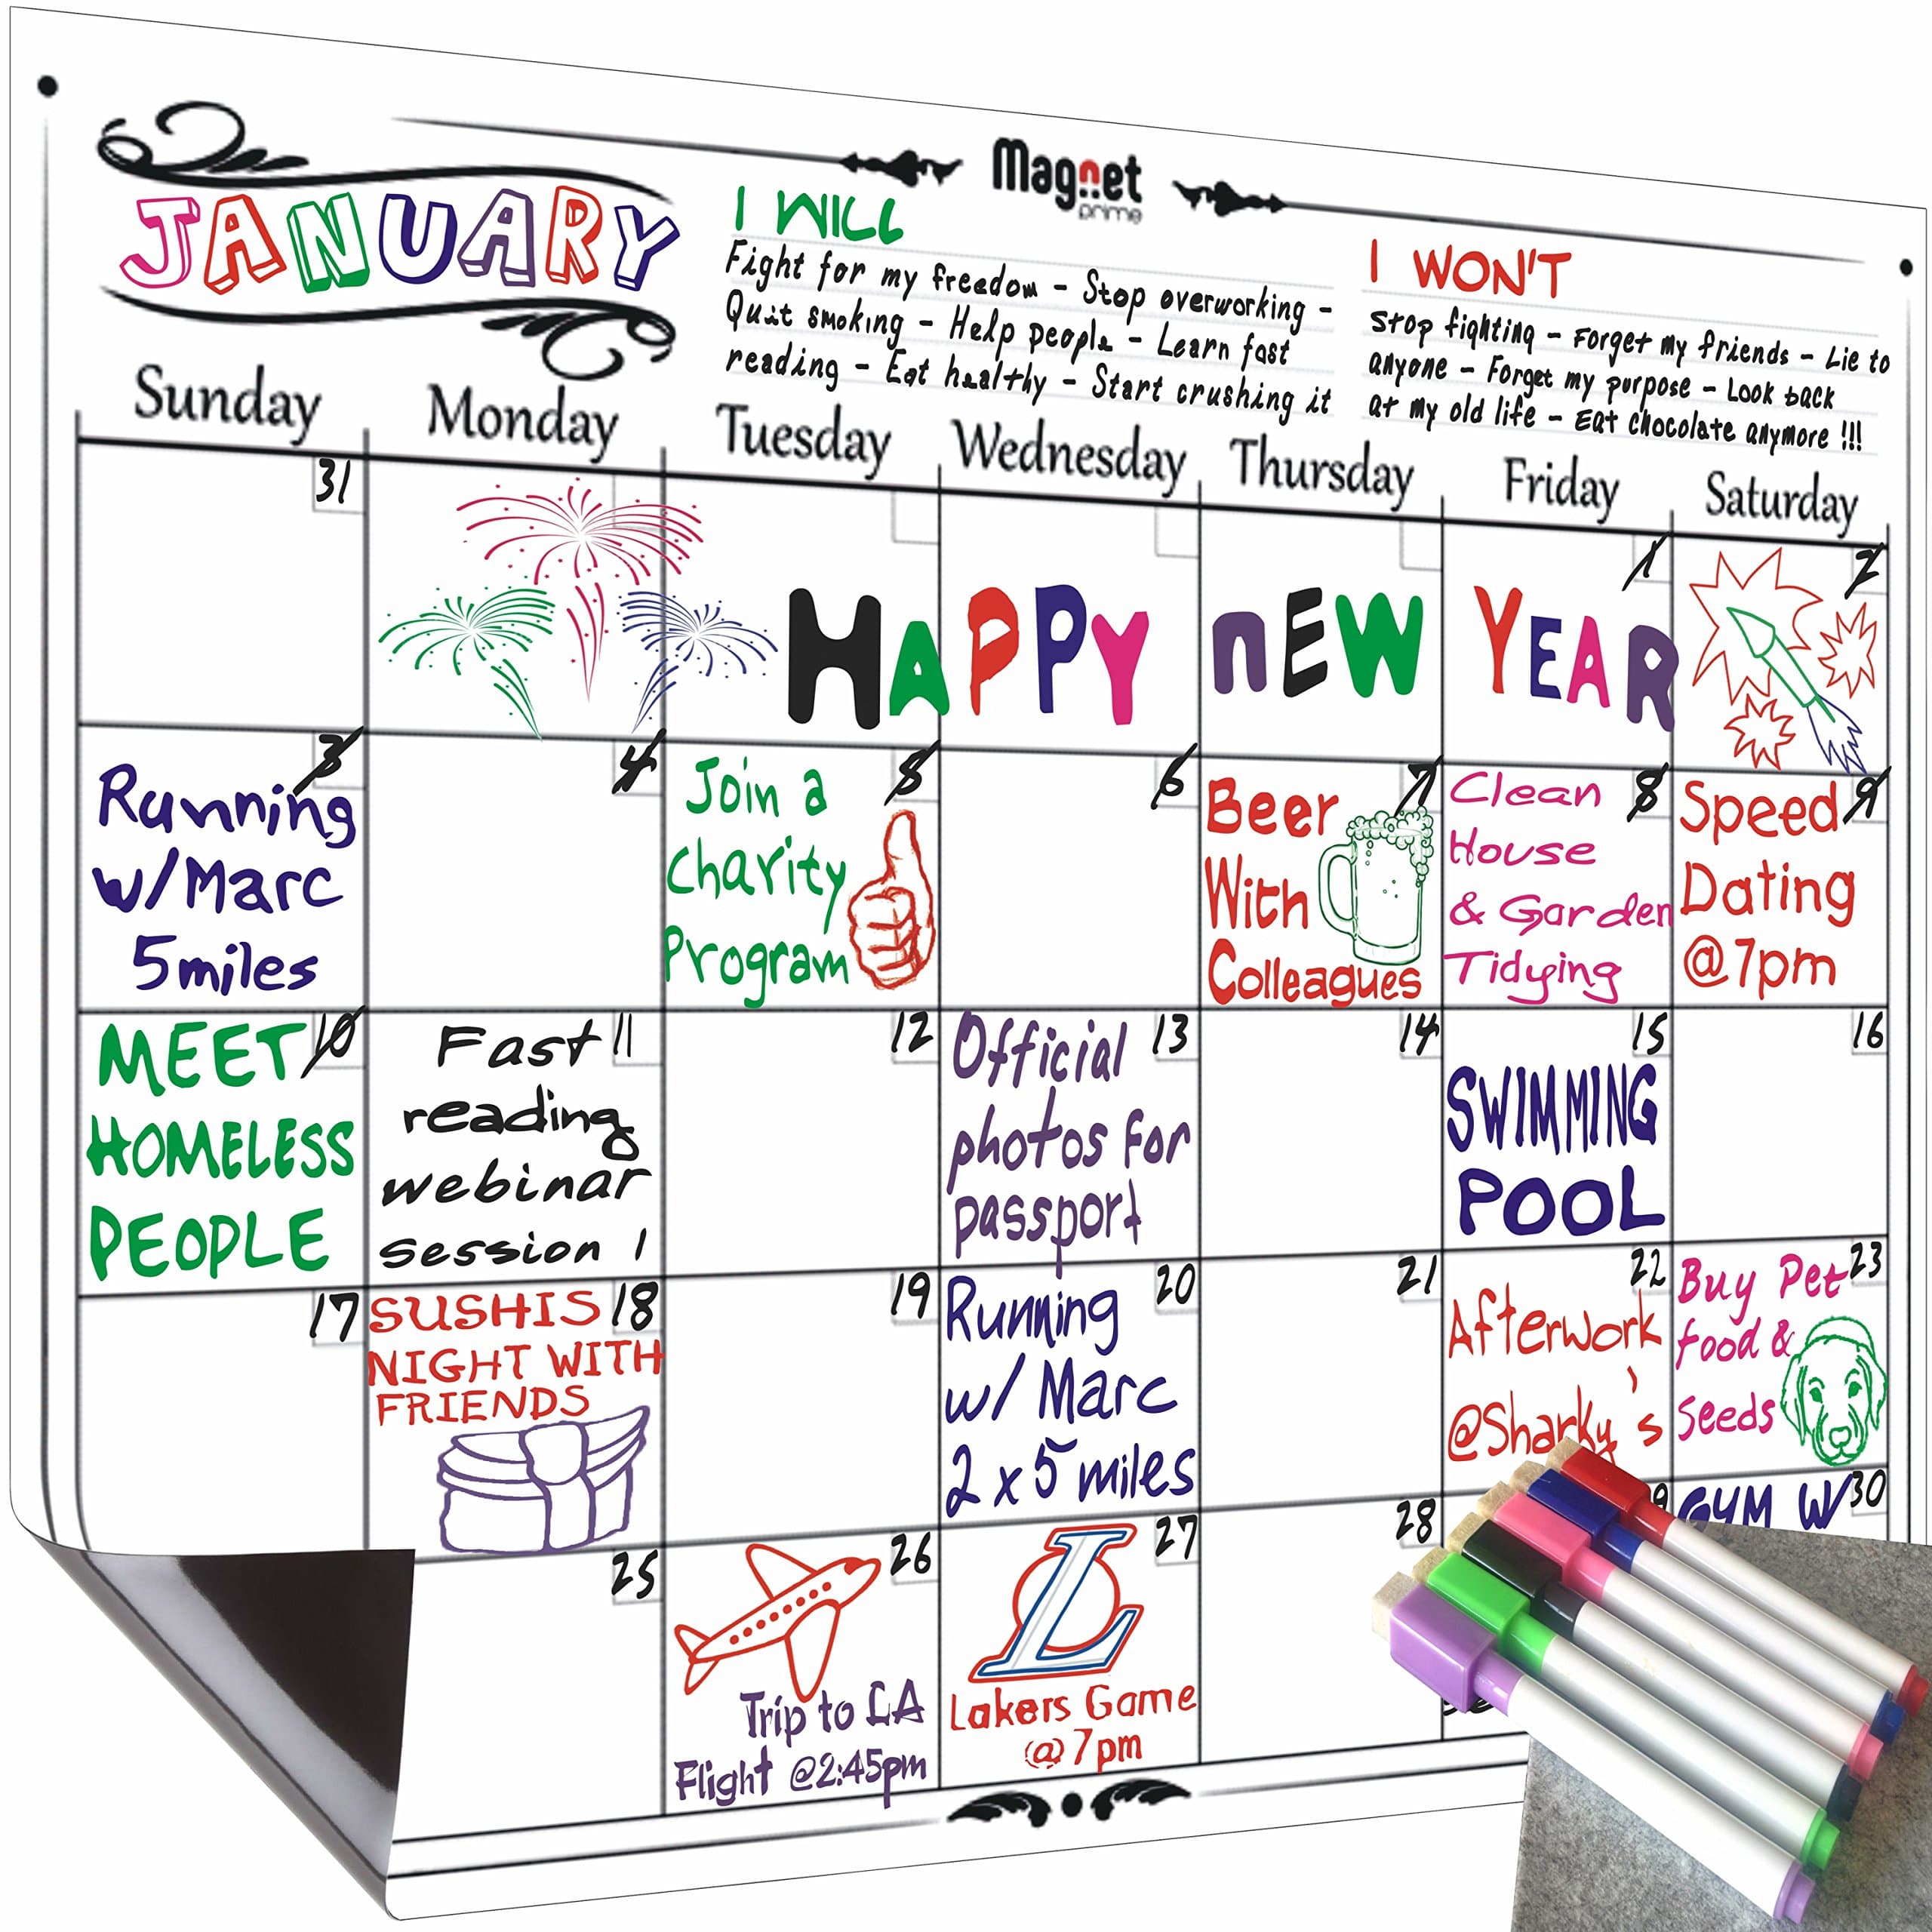 Magnet
prime
JANUARY
I WILL
Fight for my freedom - Stop overworking -
Quit smoking - Help people - Learn fast
reading - Eat healthy - Start crushing it
I WON'T
Stop fighting - Forget my friends - Lie to
anyone - Forget my purpose - Look back
at my old life - Eat chocolate anymore !!!
Sunday Monday Tuesday Wednesday Thursday Friday Saturday
31
1
2
HAPPY nEW YEAR
3
Running
w/Marc
5miles
4
5
Join a
charity
Program
6
7
Beer
With
Colleagues
8
Clean
House
& Garden
Tidying
9
Speed
Dating
@7pm
10
MEET
HOMELESS
PEOPLE
11
Fast
reading
webinar
session 1
12
13
Official
photos for
passport
14
15
SWIMMING
POOL
16
17
18
SUSHIS
NIGHT WITH
FRIENDS
19
20
Running
w/ Marc
2 x 5 miles
21
22
Afterwork
@Sharky's
23
Buy Pet
food &
Seeds
25
26
Trip to LA
Flight @2:45pm
27
L
Lakers Game
@ 7pm
28
9
30
GYM W/